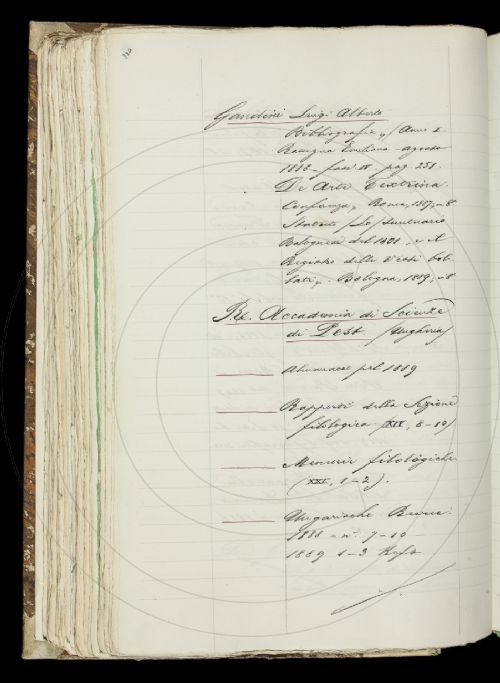 Gandini Luigi Alberto
Bibliografia, (Anno I.
Rassegna Emiliana agosto
1888 - fasc. IV pag 251.
De Arte Textrina.
Conferenza, Roma, 1887, - 8°
Statuto (Lo) suntuario
Bolognese del 1401 e il
Registro delle vesti bol-
late, - Bologna, 1889, - 8
Re. Accademia di Scienze
di Pest (Ungheria)
Almanacco pel 1889
Rapporti della Sezione
filologica (XIV, 8-10)
Memorie filologiche
(XXI, 1-2).
Ungarische Revue.
1888 - n.i 7-10 -
1889 1-3 Heft